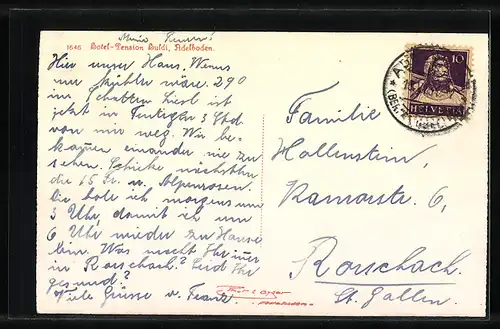 1646 Hotel-Pension Huldi, Adelboden.
Hier unser Haus. Wenns
nur kühler wäre. 290
im Schatten. Liesl ist
jetzt in 3 Std
von mir weg. Wir be-
kommen einander nie zu
sehen. Schicke nächstens
die 15 Fr. u. Alpenrosen.
Die hole ich morgens um
3 Uhr, damit ich um
6 Uhr wieder zu Hause
bin. Was macht Ihr nur
in Rorschach? Seid Ihr
gesund?
Viele Grüsse v. Franz.
10
HELVETIA
Familie
Hollenstein,
6,
Rorschach
St. Gallen.